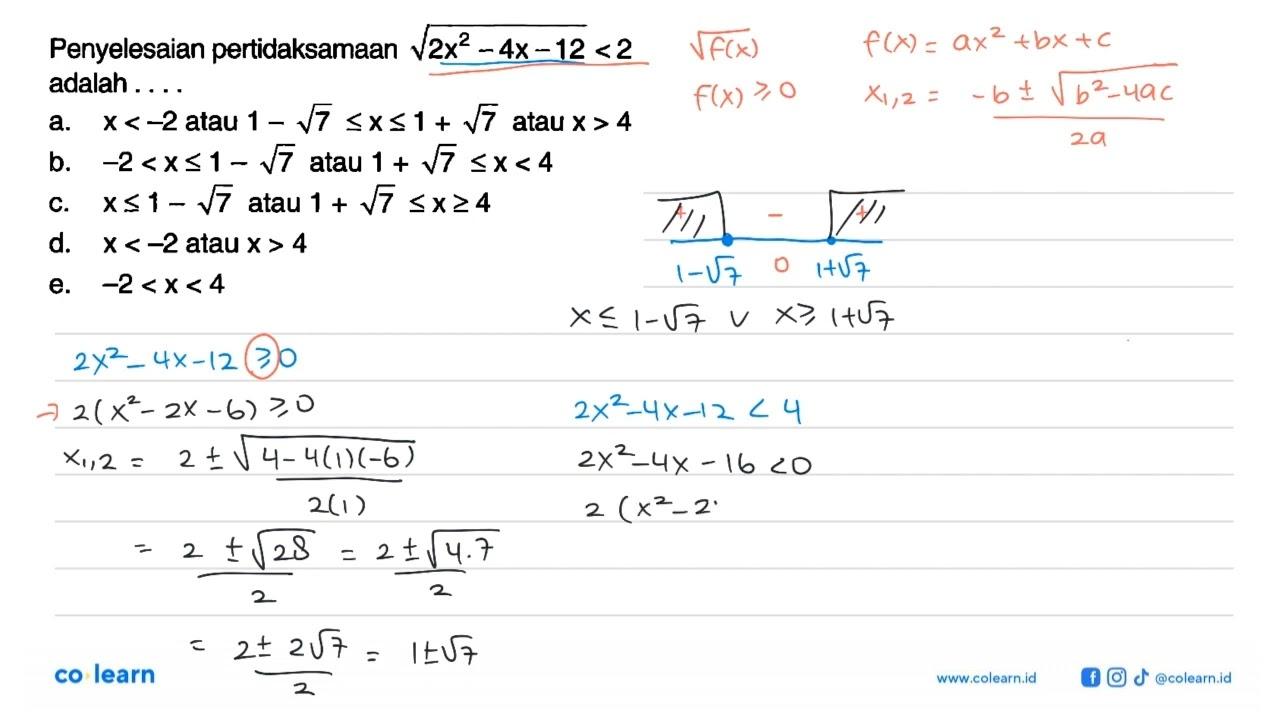 Penyelesaian pertidaksamaan √(2x² – 4x – 12) < 2
adalah . . . .
a. x < –2 atau 1 – √7 ≤ x ≤ 1 + √7 atau x > 4
b. –2 < x ≤ 1 – √7 atau 1 + √7 ≤ x < 4
c. x ≤ 1 – √7 atau 1 + √7 ≤ x ≥ 4
d. x < –2 atau x > 4
e. –2 < x < 4
√f(x)
f(x) ≥ 0
f(x) = ax² + bx + c
x₁,₂ = (-b ± √(b² - 4ac))/2a
+ - +
1-√7 0 1+√7
x ≤ 1-√7 ∨ x ≥ 1+√7
2x² - 4x - 12 ≥ 0
→ 2(x² - 2x - 6) ≥ 0
x₁,₂ = (2 ± √(4 - 4(1)(-6)))/2(1)
= (2 ± √28)/2 = (2 ± √(4.7))/2
= (2 ± 2√7)/2 = 1 ± √7
2x² - 4x - 12 < 4
2x² - 4x - 16 < 0
2 (x² - 2
co learn
www.colearn.id
@colearn.id